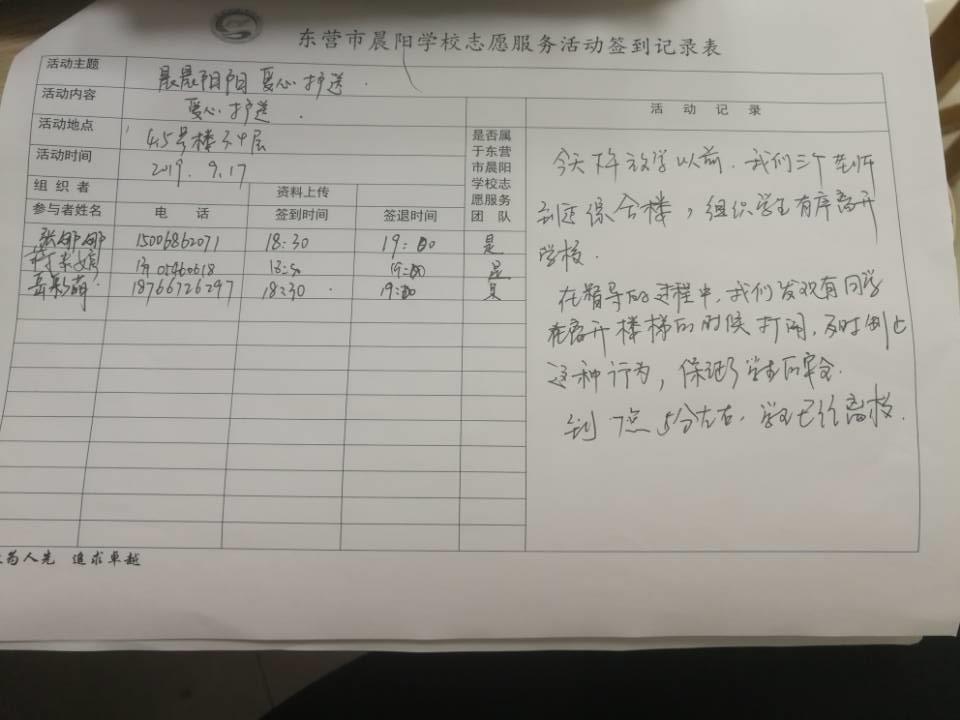 东营市晨阳学校志愿服务活动签到记录表
活动主题 晨晨阳阳 爱心护送.
活动内容 爱心护送.
活动地点 4.5号楼 3.4层
活动时间 2019. 9.17
组织者 资料上传
参与者姓名 电话 签到时间 签退时间
是否属
于东营
市晨阳
学校志
愿服务
团队
张娜娜 15006862071 18:30 19:00 是
05460618 19:00 是
岳彩萌 18766726297 18:30 19:00 是
活动记录
今天下午放学以前.我们三个老师
到达综合楼,组织学生有序离开
学校.
在指导的过程中,我们发现有同学
在离开楼梯的时候打闹,及时制止
这种行为,保证了学生的安全.
到7点5分左右.学生已经离校.
为人先 追求卓越